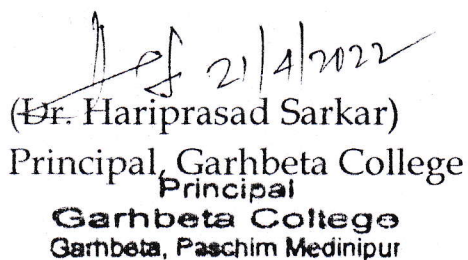 21/4/2022
(Dr. Hariprasad Sarkar)
Principal, Garhbeta College
Principal
Garhbeta College
Garhbeta, Paschim Medinipur